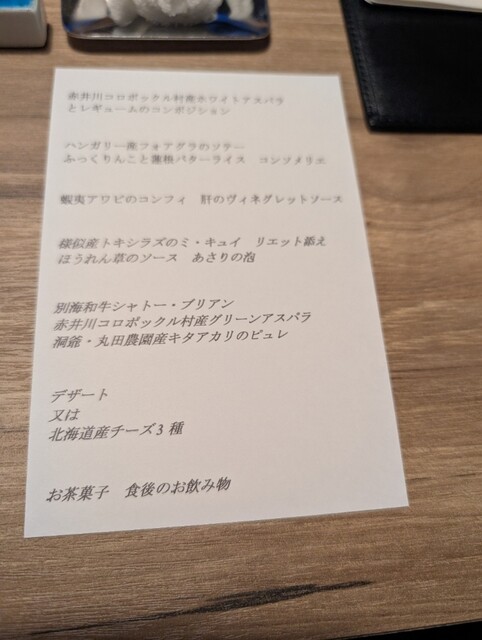 赤井川コロポックル村産ホワイトアスパラ
とレギュームのコンポジション
ハンガリー産フォアグラのソテー
ふっくりんこと蓮根バターライス　コンソメリエ
蝦夷アワビのコンフィ　肝のヴィネグレットソース
様似産トキシラズのミ・キュイ　リエット添え
ほうれん草のソース　あさりの泡
別海和牛シャトー・ブリアン
赤井川コロポックル村産グリーンアスパラ
洞爺・丸田農園産キタアカリのピュレ
デザート
又は
北海道産チーズ3 種
お茶菓子　食後のお飲み物